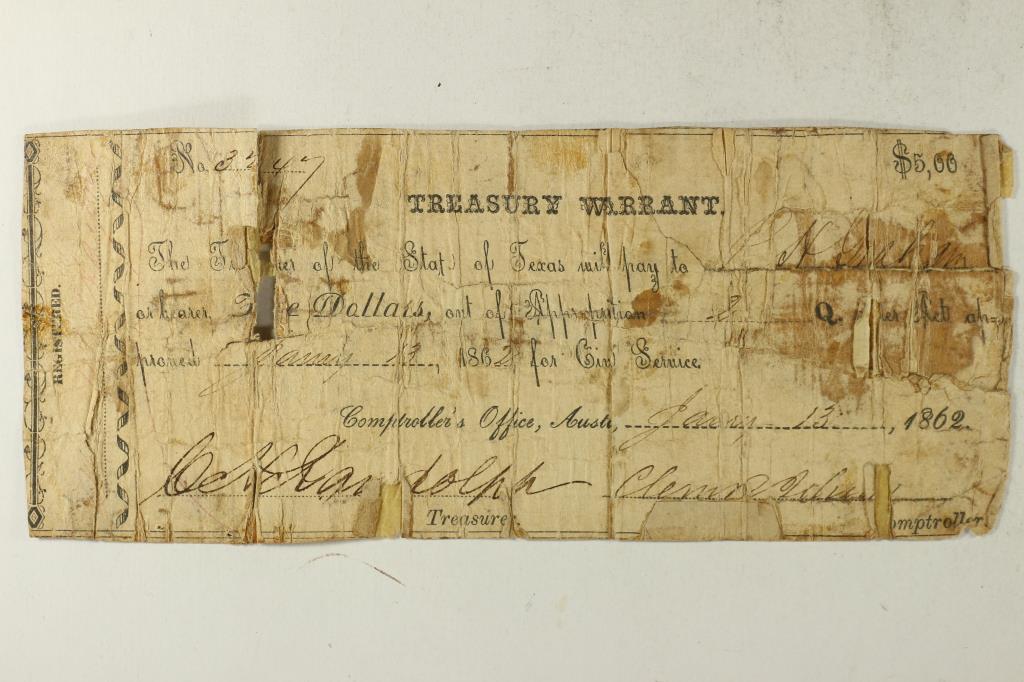 REGISTERED.
No. 3247
$5,00
TREASURY WARRANT.
The Tr er of the Stat of Texas will pay to
or bearer, Dollars, out of Appropition 2 Q. er Act ap-
proved Jany 13, 1862 for Civ Service.
Comptroller's Office, Austi, Jany 13, 1862.
C H Randolph
Treasure
omptroller.